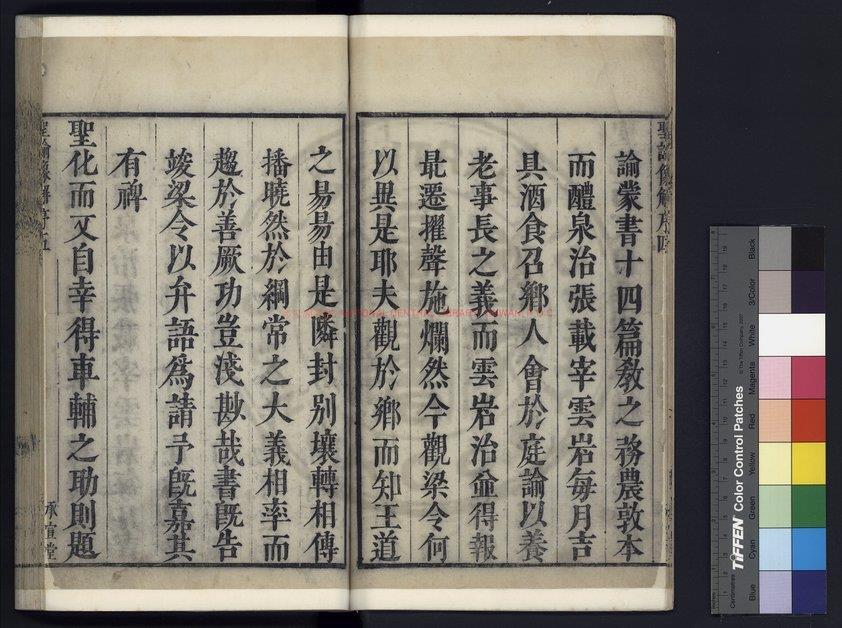 諭蒙書十四篇敎之務農敦本
而醴泉治張載宰雲岩每月吉
具酒食召鄉人會於庭諭以養
老事長之義而雲岩治並得報
最遷擢聲施爛然今觀梁令何
以異是耶夫觀於鄉而知王道
之易易由是隣封別壤轉相傳
播曉然於綱常之大義相率而
趨於善厥功豈淺尠哉書旣告
竣梁令以弁語爲請予旣嘉其
有裨
聖化而又自幸得車輔之助則題
聖諭像解序四
承宣堂
TIFFEN Color Control Patches
© The Tiffen Company, 2007
Centimetres
Blue
Cyan
Green
Yellow
Red
Magenta
White
3/Color
Black